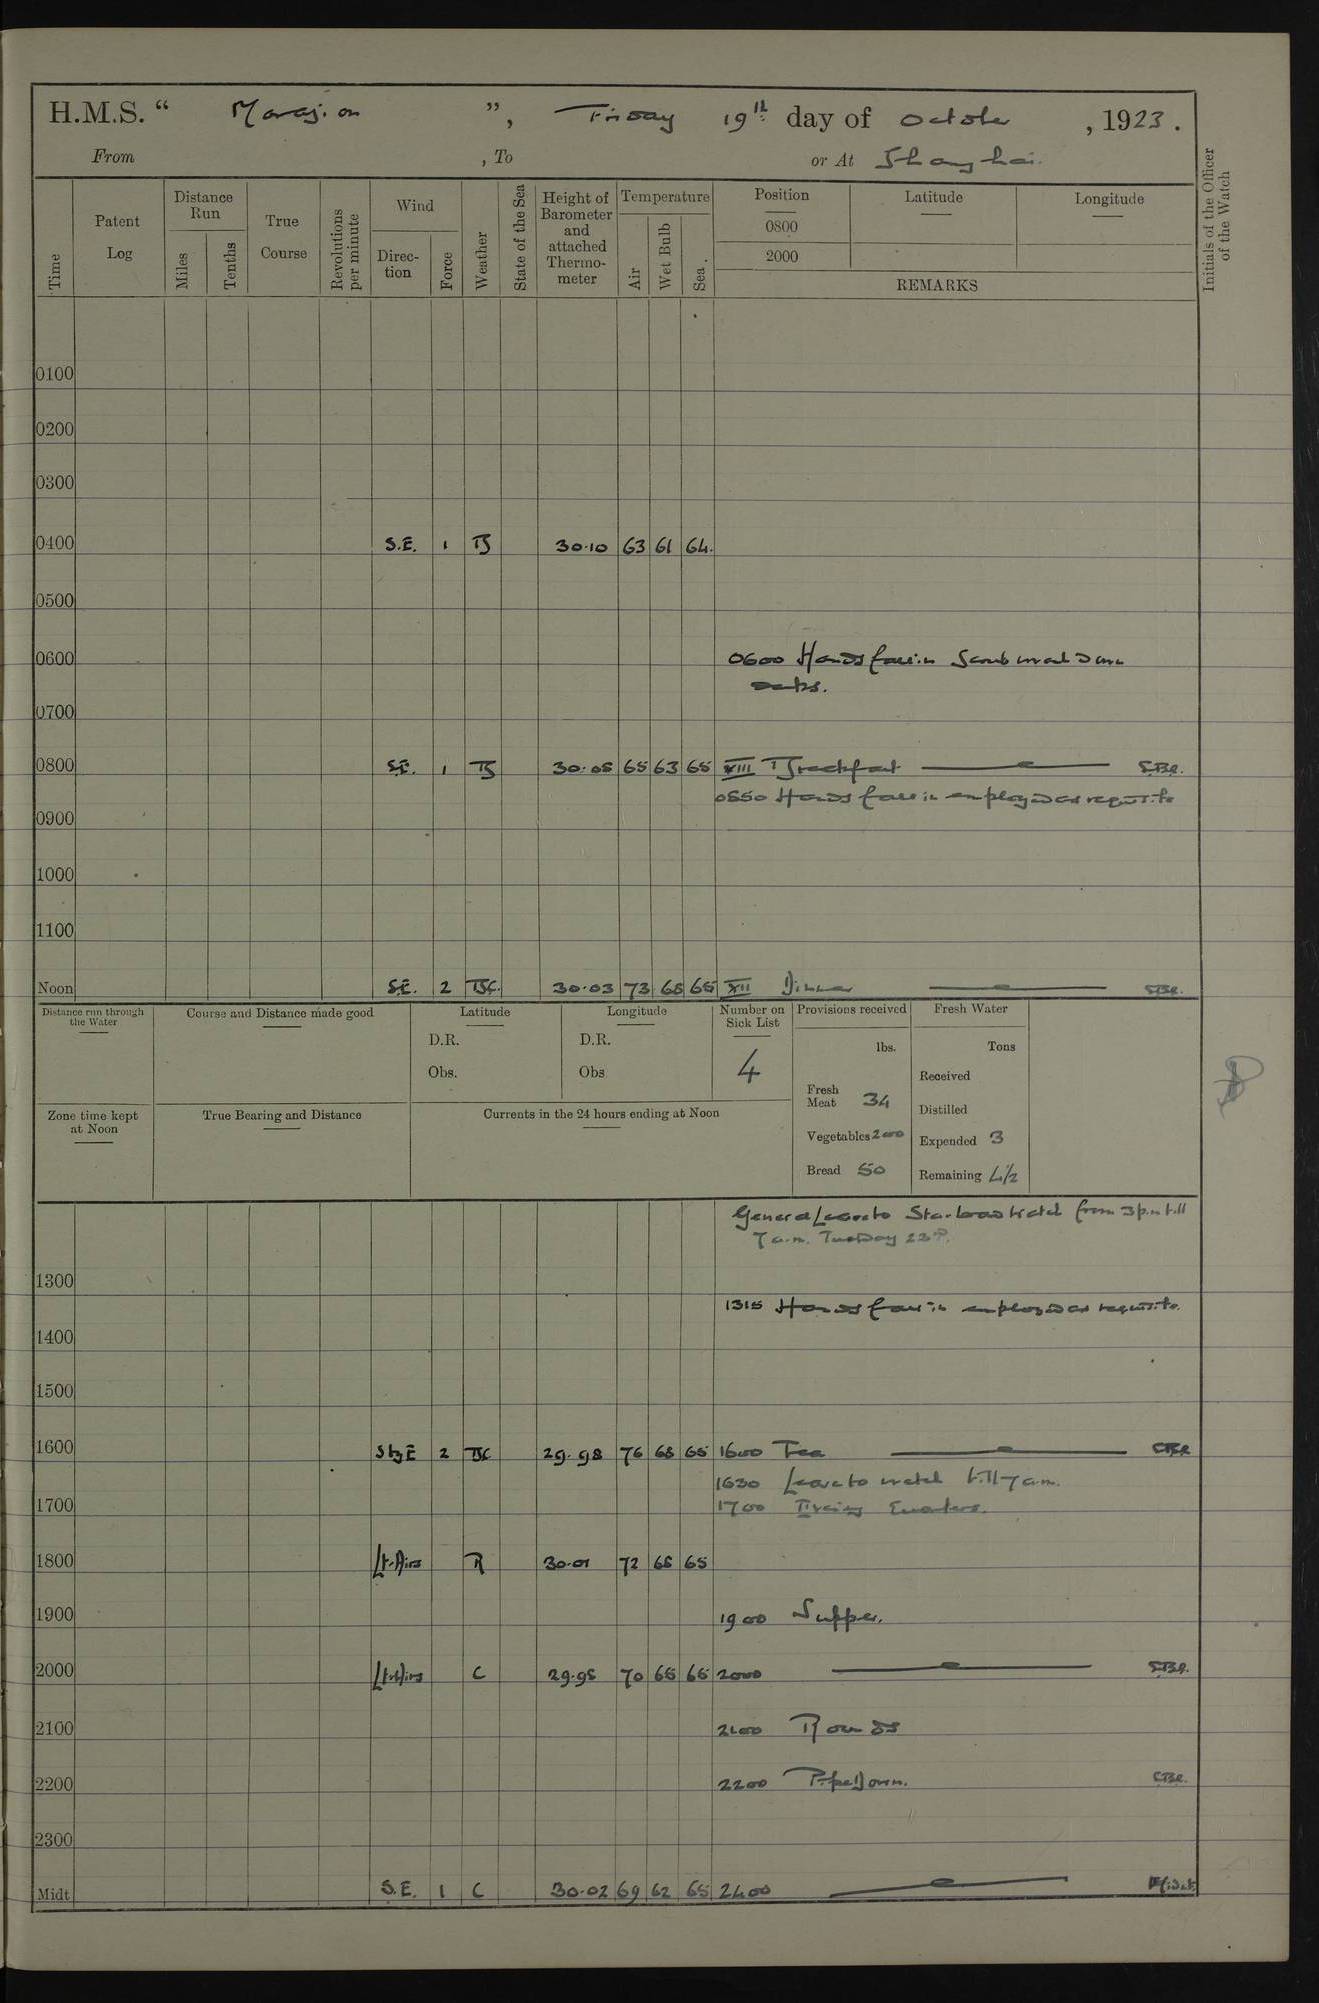 H.M.S. “ Marazion ”, Friday 19th day of October, 1923.
From , To or At Shanghai.
Time
Patent Log
Distance Run
Miles
Tenths
True Course
Revolutions per minute
Wind
Direction
Force
Weather
State of the Sea
Height of Barometer and attached Thermometer
Temperature
Air
Wet Bulb
Sea.
Position Latitude Longitude
0800
2000
REMARKS
Initials of the Officer of the Watch
0100
0200
0300
0400 S.E. 1 B 30.10 63 61 64.
0500
0600 0600 Hands fall in Scrub and down
decks.
0700
0800 S.E. 1 B 30.08 65 63 65 VIII Breakfast
0850 Hands fall in employed as requisite
0900
1000
1100
Noon S.E. 2 BC. 30.03 73 68 65 XII Dinner
Distance run through the Water
Course and Distance made good
Latitude
D.R.
Obs.
Longitude
D.R.
Obs
Number on Sick List
4
Provisions received
lbs.
Fresh Meat 34
Vegetables 200
Bread 50
Fresh Water
Tons
Received
Distilled
Expended 3
Remaining 4½
Zone time kept at Noon
True Bearing and Distance
Currents in the 24 hours ending at Noon
General Leave to Starboard Watch from 3 p.m. till
7 a.m. Tuesday 23rd.
1300
1315 Hands fall in employed as requisite.
1400
1500
1600 S by E 2 BC 29.98 76 68 65 1600 Tea
1630 Leave to watch till 7 a.m.
1700 1700 Evening Quarters.
1800 Lt. Airs R 30.01 72 66 65
1900 1900 Supper.
2000 Lt. Airs C 29.98 70 65 65 2000
2100 2100 Rounds
2200 2200 Pipe Down.
2300
Midt S.E. 1 C 30.02 69 62 65 2400